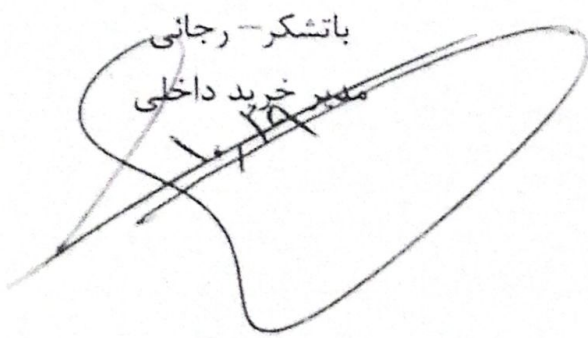 باتشکر – رجائی
مدیر خرید داخلی